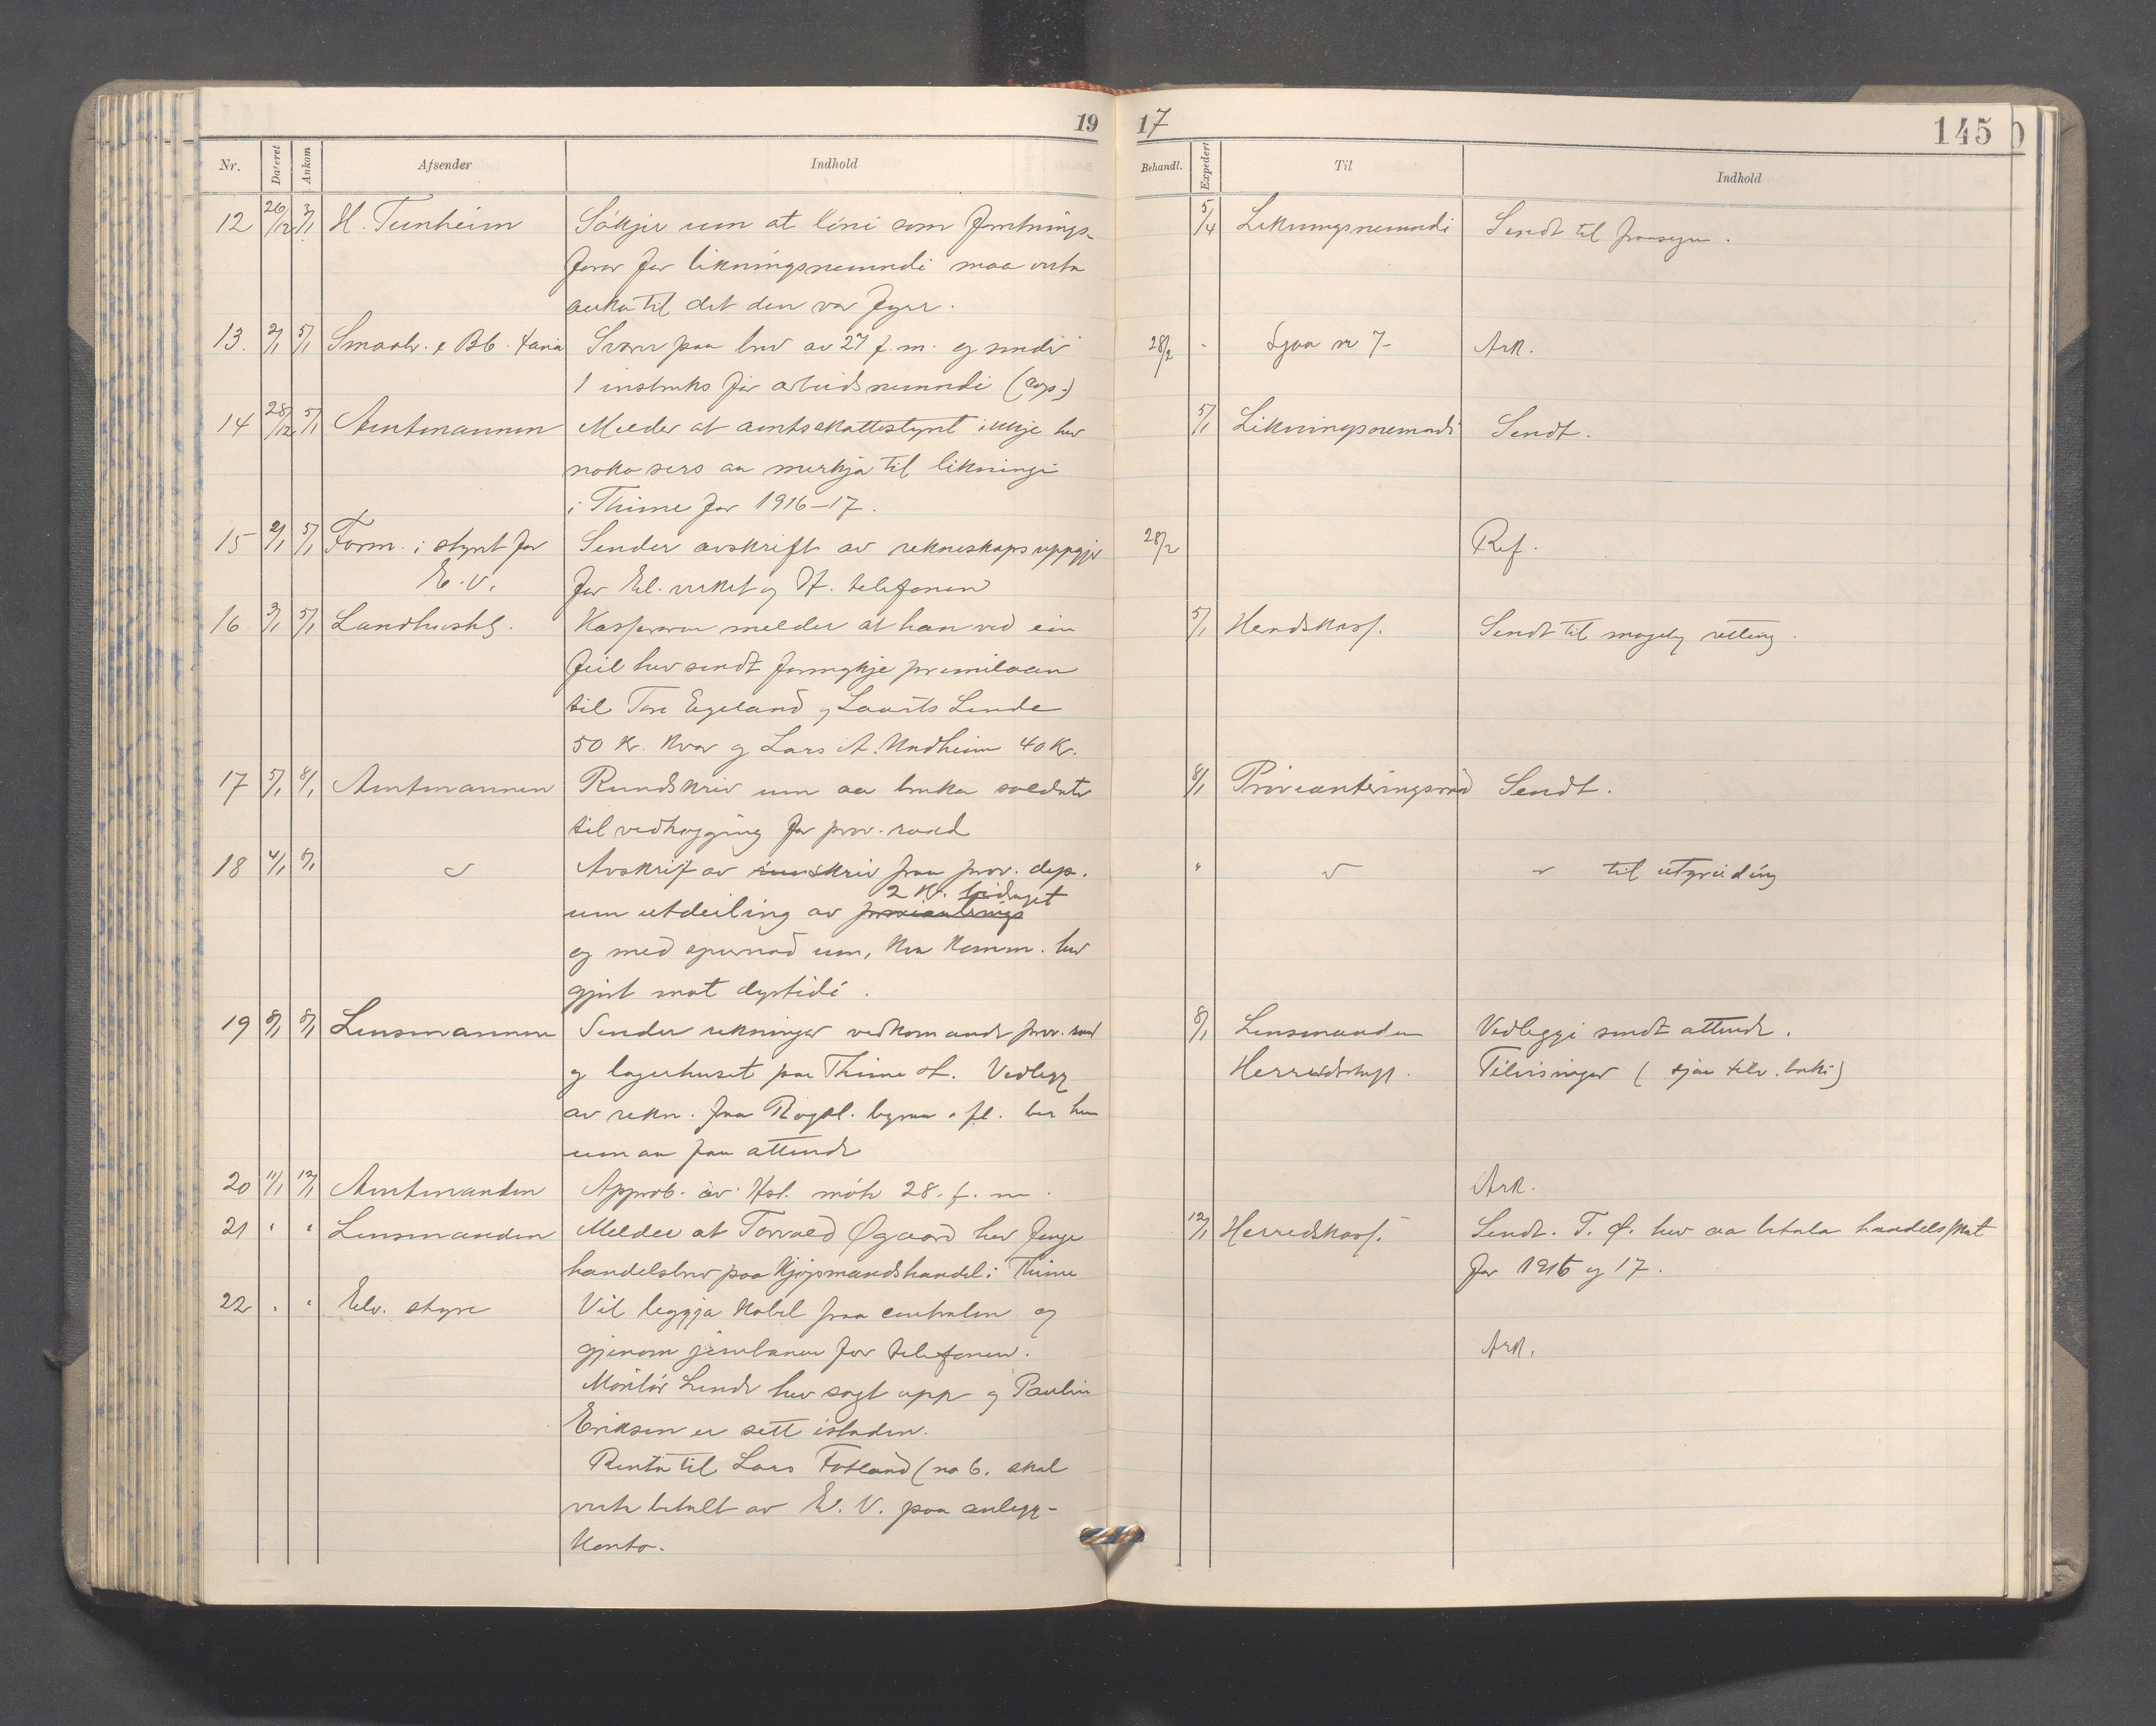 19 17 145
Nr. Dateret Ankom Afsender Indhold Behandl. Expedert Til Indhold
12 26/12 3/1 H. Tunheim Søkjer um at löni som forretnings- 5/4 Likningsnemndi Sendt til fraasegn.
förar for likningsnemndi maa verta
auka til det den var fyrr.
13. 2/1 5/1 Smaabr. & Bb. Svarar paa brev av 27 f.m. og sender 28/2 - Sjaa nr 7- Ark.
1 instruks for arbeidsnemndi
14 28/12 5/1 Amtmannen Melder at amtsskattestyret ikkje hev 5/1 Likningsnemndi Sendt.
noko sers aa merkja til likningi
i Thime for 1916-17.
15 2/1 5/1 Form. i styret for Sender avskrift av rekneskapsuppgjer 28/2 Ref.
E.V. for El. verket og tf. telefonen
16 3/1 5/1 Landhushl. Kasseraren melder at han ved ein 5/1 Herredskass. Sendt til mogeleg retting.
feil hev sendt formykje premilaan
til Tore Egeland og Laurits Lende
50 kr. kvar og Lars A. Undheim 40 kr.
17 5/1 8/1 Amtmannen Rundskriv um aa bruka soldatar 8/1 Provianteringsraad Sendt.
til vedhogging for prov. raad
18 4/1 8/1 Avskrift av skriv fraa prov. dep. " til utgreiding
2 K. bidraget
um utdeiling av provianterings
og med spursmaal um, kva komm. hev
gjort mot dyrtidi.
19 8/1 8/1 Lensmannen Sender rekningar vedkomande prov. raad 8/1 Lensmanden Vedleggi sendt attende.
og lagerhuset paa Thime st. Vedlegg Herredskass. Tilvisingar (sjaa tilv. boki)
av rekn. fraa Rogal. o. fl. ber han
um aa faa attende
20 11/1 12/1 Amtmanden Approb. av Hst. möte 28. f. m. Ark.
21 " " Lensmanden Melder at Torvald Øgaard hev fenge 12/1 Herredskass. Sendt. T. Ø. hev aa betala handelsskat
handelsbrev paa kjøpmandshandel i Thime for 1916 og 17.
22 " " Elv. styre Vil leggja kabel fraa centralen og
gjenom jernbanen for telefonen. Ark.
Montör Lende hev sagt upp og Paulin
Eriksen er sett istaden.
Renta til Lars Fotland (no 6. skal
verta betalt av E. V. paa anlegg-
konto.